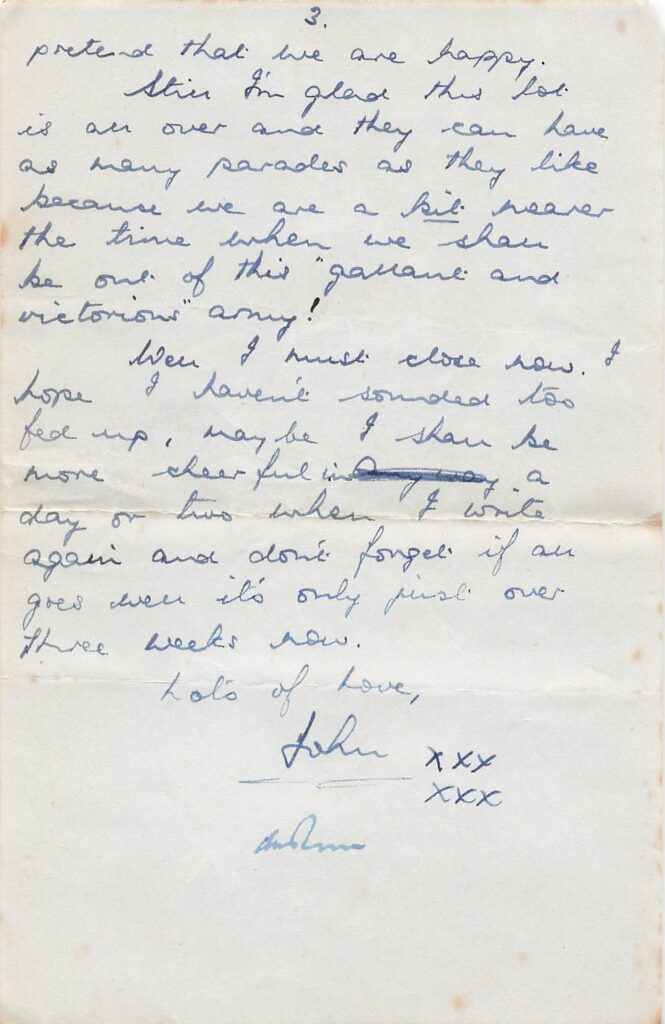 3.
pretend that we are happy.
Still I'm glad this lot
is all over and they can have
as many parades as they like
because we are a bit nearer
the time when we shall
be out of this "gallant and
victorious" army!
Well I must close now. I
hope I haven't sounded too
fed up, maybe I shall be
more cheerful in a
day or two when I write
again and don't forget if all
goes well it's only just over
three weeks now.
Lots of Love,
John xxx
xxx